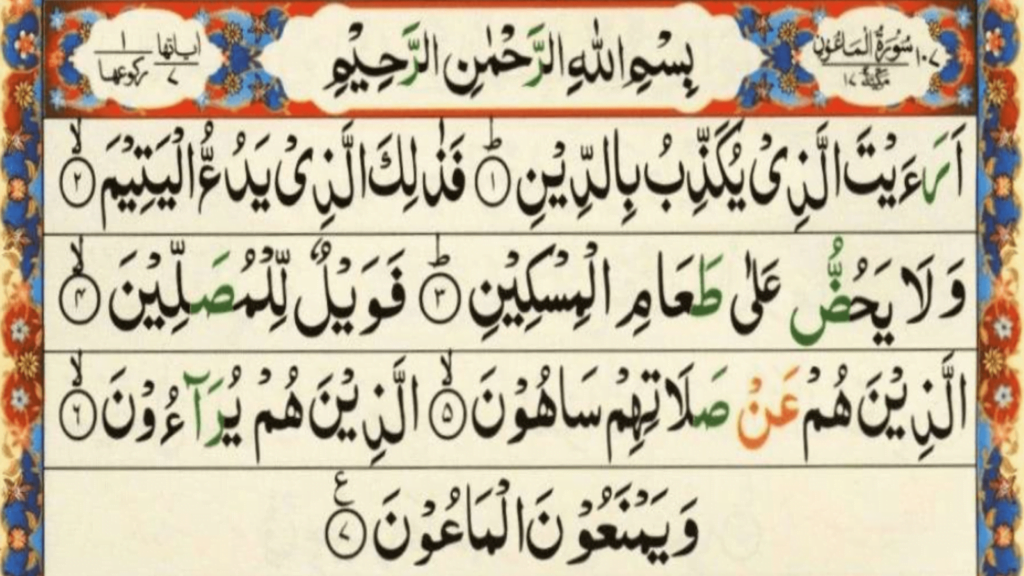 ١٠٧ سُوْرَةُ الْمَاعُوْنِ مَكِّيَّةٌ ١٧
بِسْمِ اللّٰهِ الرَّحْمٰنِ الرَّحِيْمِ
اٰیاتها ٧ ركوعها ١
اَرَءَيْتَ الَّذِىْ يُكَذِّبُ بِالدِّيْنِ ؕ﴿١﴾ فَذٰلِكَ الَّذِىْ يَدُعُّ الْيَتِيْمَ ۙ﴿٢﴾
وَلَا يَحُضُّ عَلٰى طَعَامِ الْمِسْكِيْنِ ؕ﴿٣﴾ فَوَيْلٌ لِّلْمُصَلِّيْنَ ۙ﴿۴﴾
الَّذِيْنَ هُمْ عَنْ صَلَاتِهِمْ سَاهُوْنَ ۙ﴿۵﴾ الَّذِيْنَ هُمْ يُرَآءُوْنَ ۙ﴿۶﴾
وَيَمْنَعُوْنَ الْمَاعُوْنَ ﴿٧﴾ ع